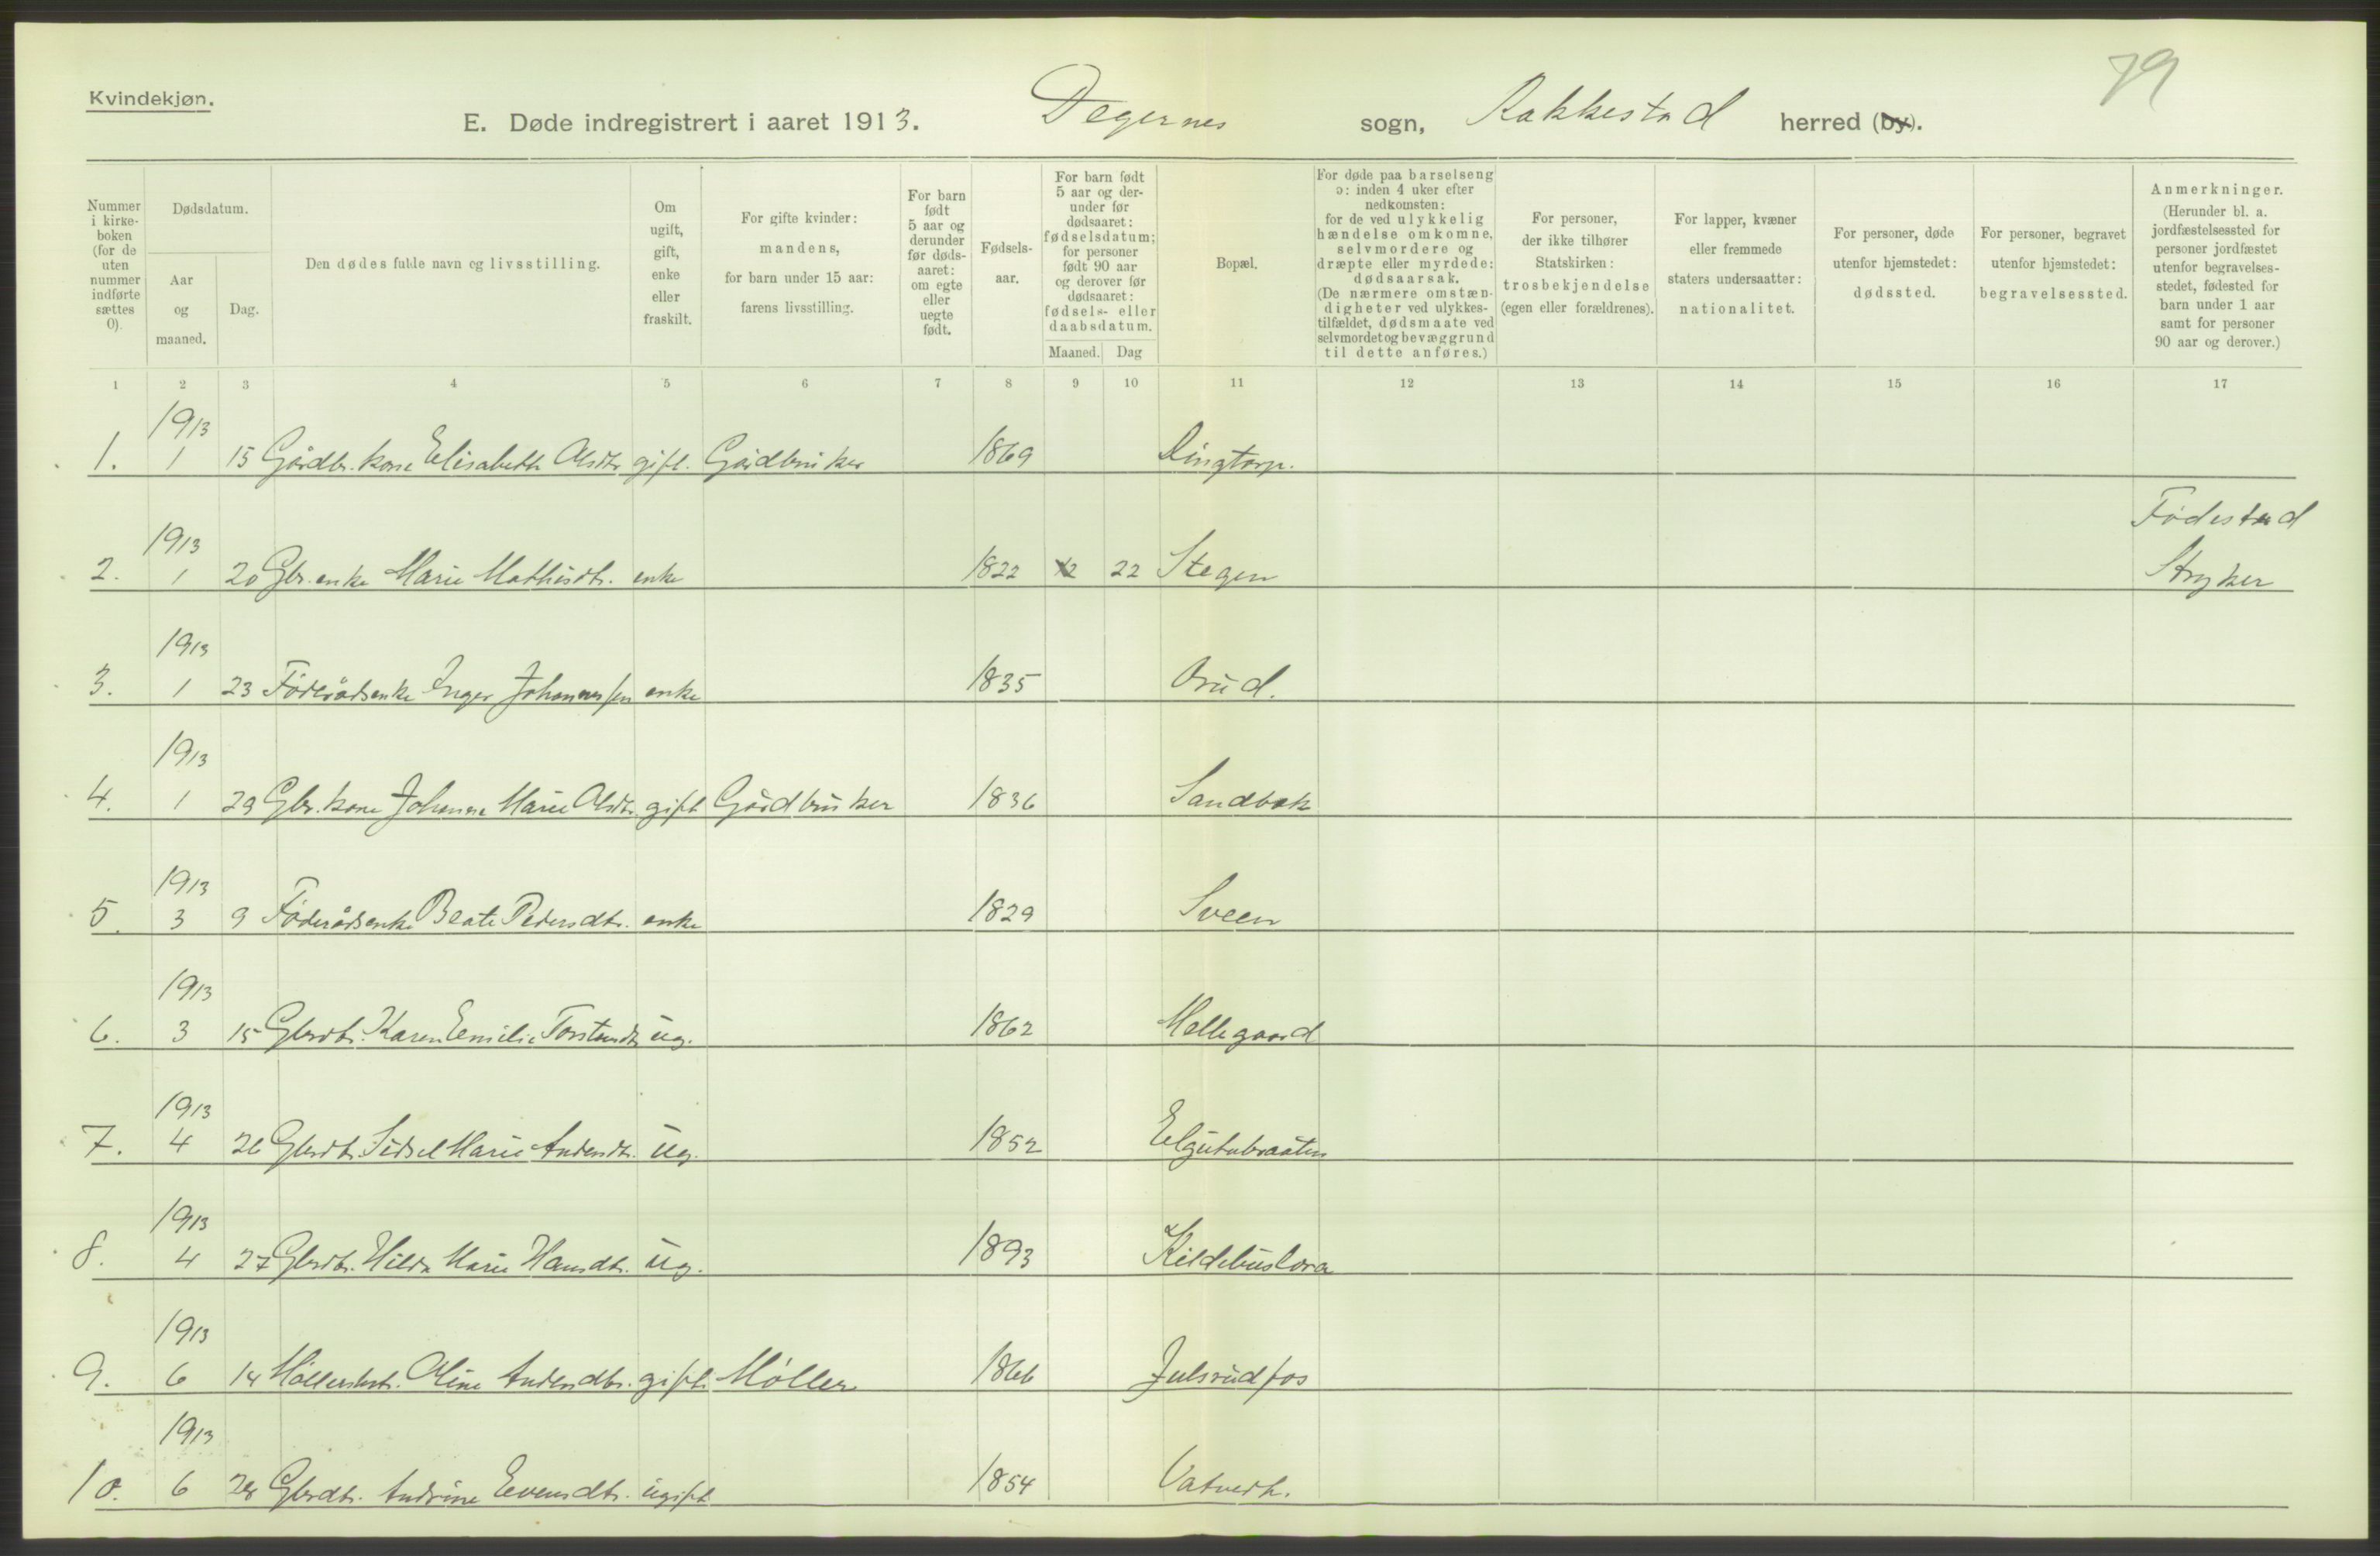 79
Kvindekjøn.
E. Døde indregistrert i aaret 1913. Degernes sogn, Rakkestad herred (by).
Nummer i kirkeboken (for de uten nummer indførte sættes 0).
Dødsdatum.
Aar og maaned.
Dag.
Den dødes fulde navn og livsstilling.
Om ugift, gift, enke eller fraskilt.
For gifte kvinder: mandens, for barn under 15 aar: farens livsstilling.
For barn født 5 aar og derunder før dødsaaret: om egte eller uegte født.
Fødselsaar.
For barn født 5 aar og derunder før dødsaaret: fødselsdatum; for personer født 90 aar og derover før dødsaaret: fødsels- eller daabsdatum.
Maaned. Dag
Bopæl.
For døde paa barselseng ɔ: inden 4 uker efter nedkomsten: for de ved ulykkelig hændelse omkomne, selvmordere og dræpte eller myrdede: dødsaarsak. (De nærmere omstændigheter ved ulykkestilfældet, dødsmaate ved selvmordet og bevæggrund til dette anføres.)
For personer, der ikke tilhører Statskirken: trosbekjendelse (egen eller forældrenes).
For lapper, kvæner eller fremmede staters undersaatter: nationalitet.
For personer, døde utenfor hjemstedet: dødssted.
For personer, begravet utenfor hjemstedet: begravelsessted.
Anmerkninger. (Herunder bl. a. jordfæstelsessted for personer jordfæstet utenfor begravelsesstedet, fødested for barn under 1 aar samt for personer 90 aar og derover.)
1 2 3 4 5 6 7 8 9 10 11 12 13 14 15 16 17
1913
1. 1 15 Gårdbr. kone Elisabeth Olsdtr. gift. Gårdbruker 1869 Ringtorp.
1913 Fødestad
2. 1 20 Gbr. enke Marie Mathisdtr. enke 1822 12 22 Stegen Stryker
1913
3. 1 23 Føderådsenke Inger Johannessen enke 1835 Brud.
1913
4. 1 29 Gbr. kone Johanne Marie Olsdtr. gift Gårdbruker 1836 Sandbæk
1913
5. 3 9 Føderådsenke Beate Pedersdtr. enke 1829 Sveen
1913
6. 3 15 Gbrdtr. Karen Emilie Torstensdtr. ug. 1862 Mellegaard
1913
7. 4 26 Gbrdtr. Sidsel Marie Andersdtr. ug. 1852 Elgutubraaten
1913
8. 4 27 Gbrdtr. Hilda Marie Hansdtr. ug. 1893
1913
9. 6 14 Oline Andersdtr. gift. Møller 1866 Julsrudfos
1913
10. 6 28 Gbrdtr. Andrine Evensdtr. ugift 1854 Vatvedt.